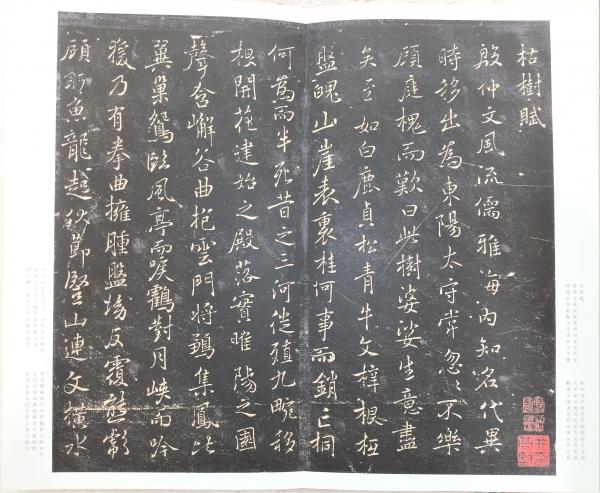 枯樹賦
殷仲文風流儒雅海內知名代異
時移出為東陽太守常忽〻不樂
顧庭槐而歎曰此樹婆娑生意盡
矣至如白鹿貞松青牛文梓根柢
盤魄山崖表裏桂何事而銷亡桐
何為而半死昔之三河徙殖九畹移
根開花建始之殿落實睢陽之園
聲含嶰谷曲抱雲門將鶵集鳳比
翼巢鴛臨風亭而唳鶴對月峽而吟
猨乃有拳曲擁腫盤坳反覆熊彪
顧盼魚龍起伏節豎山連文橫水